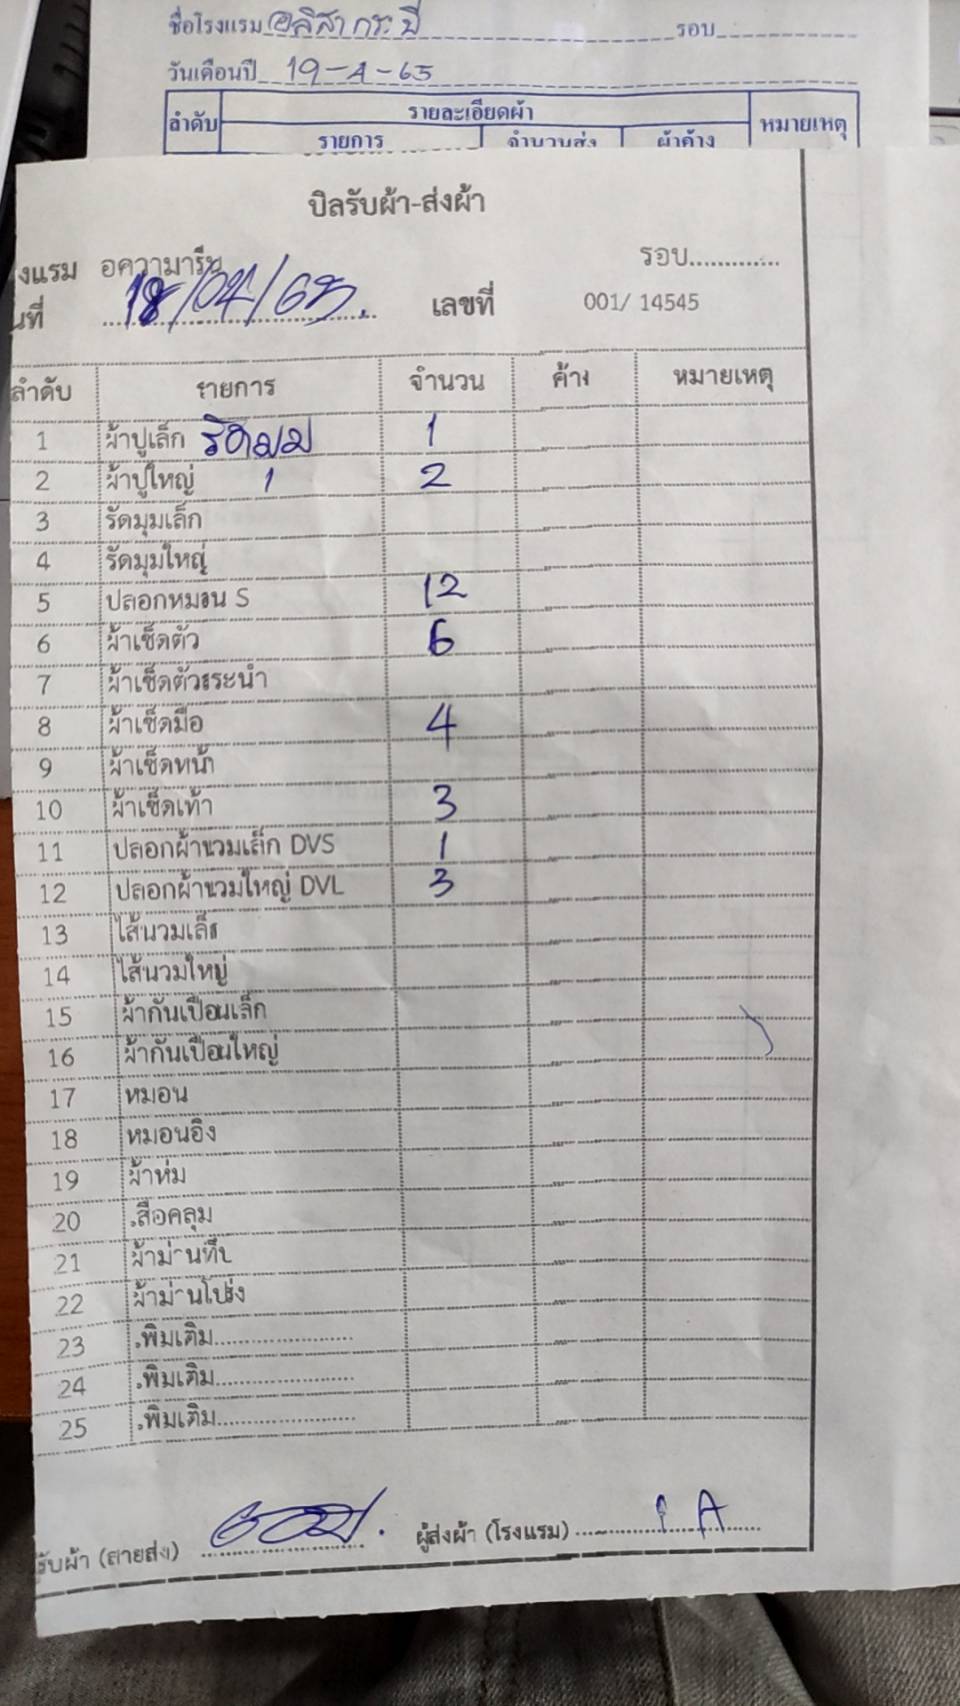 ชื่อโรงแรม อลิสา กระบี่ รอบ
วันเดือนปี 19-4-65
ลำดับ รายละเอียดผ้า หมายเหตุ
รายการ จำนวนส่ง ผ้าค้าง
บิลรับผ้า-ส่งผ้า
งแรม อความารีน รอบ.............
นที่ 18/04/65. เลขที่ 001/ 14545
ลำดับ รายการ จำนวน ค้าง หมายเหตุ
1 ผ้าปูเล็ก รัดมุม 1
2 ผ้าปูใหญ่ 1 2
3 รัดมุมเล็ก
4 รัดมุมใหญ่
5 ปลอกหมอน S 12
6 ผ้าเช็ดตัว 6
7 ผ้าเช็ดตัวสระน้ำ
8 ผ้าเช็ดมือ 4
9 ผ้าเช็ดหน้า
10 ผ้าเช็ดเท้า 3
11 ปลอกผ้านวมเล็ก DVS 1
12 ปลอกผ้านวมใหญ่ DVL 3
13 ไส้นวมเล็ก
14 ไส้นวมใหญ่
15 ผ้ากันเปื้อนเล็ก
16 ผ้ากันเปื้อนใหญ่
17 หมอน
18 หมอนอิง
19 ผ้าห่ม
20 เสื้อคลุม
21 ผ้าม่านทึบ
22 ผ้าม่านโปร่ง
23 เพิ่มเติม......................
24 เพิ่มเติม......................
25 เพิ่มเติม......................
รับผ้า (สายส่ง) ผู้ส่งผ้า (โรงแรม)